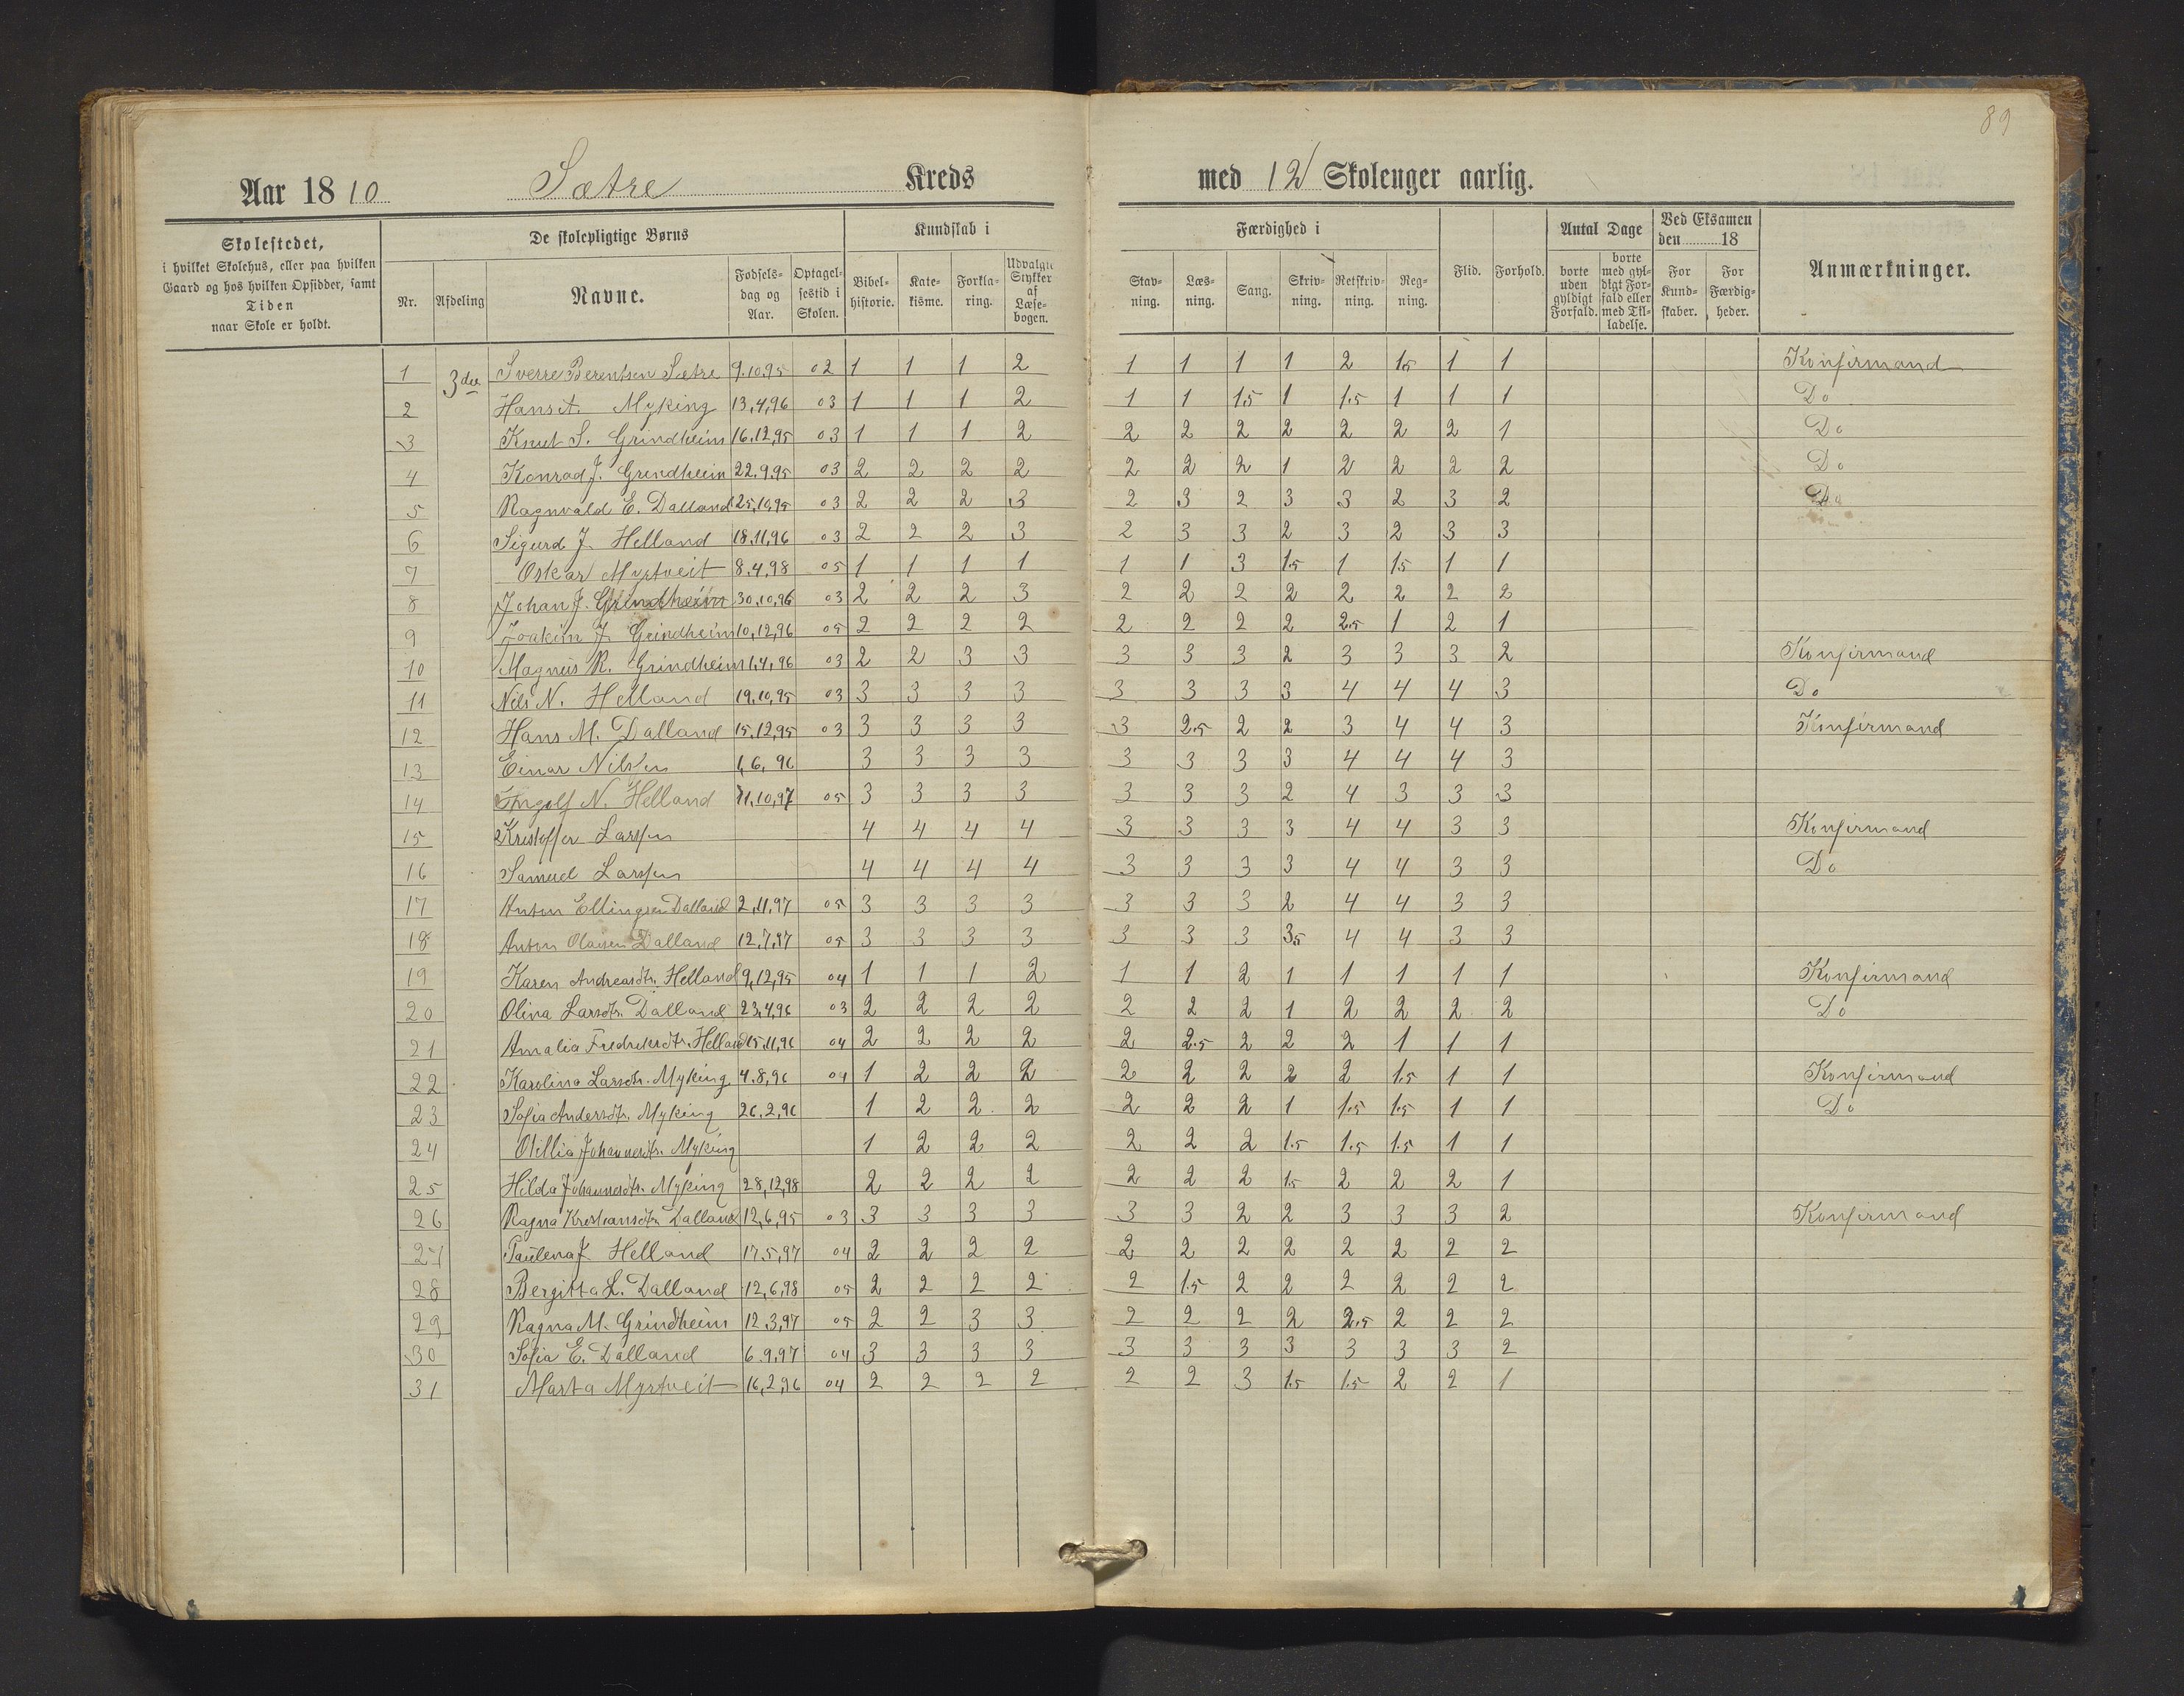 89
Aar 1810 Sætre Kreds med 12 Skoleuger aarlig.
Skolestedet,
i hvilket Skolehus, eller paa hvilken
Gaard og hos hvilken Opsidder, samt
Tiden
naar Skole er holdt.
De skolepligtige Børns
Nr. Afdeling Navne. Fødsels-dag og Aar. Optagel-sestid i Skolen.
Kundskab i
Bibel-historie. Kate-kisme. Forkla-ring. Udvalgte Stykker af Læse-bogen.
Færdighed i
Stav-ning. Læs-ning. Sang. Skriv-ning. Retskriv-ning. Reg-ning. Flid. Forhold.
Antal Dage
borte uden gyldigt Forfald. borte med gyl-digt For-fald eller med Til-ladelse.
Ved Eksamen
den 18
For Kund-skaber. For Færdig-heder.
Anmærkninger.
1 3die Sverre Berentsen Sætre 9.10.95 02 1 1 1 2 1 1 1 1 2 1.5 1 1 Konfirmand
2 Hans A. Myking 13,4,96 03 1 1 1 2 1 1 1.5 1 1.5 1 1 1 Do
3 Knut S. Grindheim 16.12,95 03 1 1 1 2 2 2 2 2 2 2 2 1 Do
4 Konrad J. Grindheim 22.9.95 03 2 2 2 2 2 2 2 1 2 2 2 2 Do
5 Ragnvald E. Dalland 25,10,95 03 2 2 2 3 2 3 2 3 3 2 3 2 Do
6 Sigurd J. Helland 18.11,96 03 2 2 2 3 2 3 3 2 3 2 3 3
7 Oskar Myrtveit 8.4,98 05 1 1 1 1 1 1 3 1.5 1 1.5 1 1
8 Johan J. Grindheim 30.10,96 03 2 2 2 3 2 2 2 2 2 2 2 2
9 Joakim J. Grindheim 10,12,96 05 2 2 2 2 2 2 2 2 2.5 1 2 1
10 Magnus R. Grindheim 1,4,96 03 2 2 3 3 3 3 3 2 3 3 3 2 Konfirmand
11 Nils N. Helland 19,10,95 03 3 3 3 3 3 3 3 3 4 4 4 3 Do
12 Hans M. Dalland 15,12,95 03 3 3 3 3 3 2.5 2 2 3 4 4 3 Konfirmand
13 Einar Nilsen 1,6,96 3 3 3 3 3 3 3 3 4 4 4 3
14 Ingolf N. Helland 11,10,97 05 3 3 3 3 3 3 3 2 4 3 3 3
15 Kristoffer Larssen 4 4 4 4 3 3 3 3 4 4 3 3 Konfirmand
16 Samuel Larssen 4 4 4 4 3 3 3 3 4 4 3 3 Do
17 Anton Ellingsen Dalland 2,11,97 05 3 3 3 3 3 3 3 2 4 4 3 3
18 Anton Olausen Dalland 12,7,97 05 3 3 3 3 3 3 3 3.5 4 4 3 3
19 Karen Andreasdtr. Helland 9,12,95 04 1 1 1 2 1 1 2 1 1 1 1 1 Konfirmand
20 Olina Larsdtr. Dalland 23,4,96 03 2 2 2 2 2 2 2 1 2 2 2 2 Do
21 Amalia Fredriksdtr. Helland 15,11,96 04 2 2 2 2 2 2.5 2 2 2 1 1 1
22 Karolina Larsdtr. Myking 4.8,96 04 1 2 2 2 2 2 2 2 2 1.5 1 1 Konfirmand
23 Sofia Andersdtr. Myking 26,2,96 1 2 2 2 2 2 2 1 1.5 1.5 1 1 Do
24 Otillia Johannesdtr. Myking 1 2 2 2 2 2 2 1.5 1.5 1.5 1 1
25 Hilda Johannesdtr. Myking 28,12,98 2 2 2 2 2 2 2 1.5 2 2 2 1
26 Ragna Kristiansdtr. Dalland 12,6,95 03 3 3 3 3 3 3 2 2 3 3 3 2 Konfirmand
27 Paulena J. Helland 17.5,97 04 2 2 2 2 2 2 2 2 2 2 2 2
28 Bergitta L. Dalland 12,6,98 05 2 2 2 2 2 1.5 2 2 2 2 2 2
29 Ragna M. Grindheim 12.3,97 05 2 2 3 3 2 2 2 2 2.5 2 2 2
30 Sofia E. Dalland 6.9,97 04 3 3 3 3 3 3 3 3 3 3 3 2
31 Marta Myrtveit 16,2,96 04 2 2 2 2 2 2 3 1.5 1.5 2 2 1